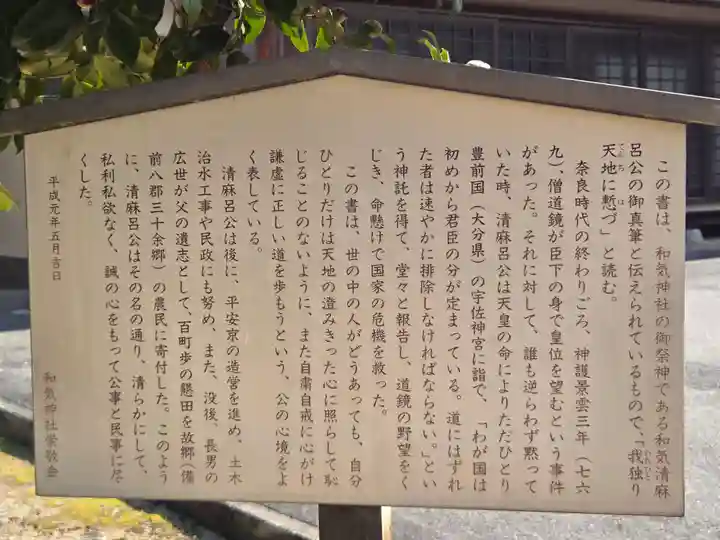 この書は、和気神社の御祭神である和気清麻
呂公の御真筆と伝えられているもので、「我独り
天地に慙づ」と読む。
奈良時代の終わりごろ、神護景雲三年(七六
九)、僧道鏡が臣下の身で皇位を望むという事件
があった。それに対して、誰も逆らわず黙って
いた時、清麻呂公は天皇の命によりただひとり
豊前国(大分県)の宇佐神宮に詣で、「わが国は
初めから君臣の分が定まっている。道にはずれ
た者は速やかに排除しなければならない。」とい
う神託を得て、堂々と報告し、道鏡の野望をく
じき、命懸けで国家の危機を救った。
この書は、世の中の人がどうあっても、自分
ひとりだけは天地の澄みきった心に照らして恥
じることのないように、また自粛自戒に心がけ
謙虚に正しい道を歩もうという、公の心境をよ
く表している。
清麻呂公は後に、平安京の造営を進め、土木
治水工事や民政にも努め、また、没後、長男の
広世が父の遺志として、百町歩の懇田を故郷(備
前八郡三十余郷)の農民に寄付した。このよう
に、清麻呂公はその名の通り、清らかにして、
私利私欲なく、誠の心をもって公事と民事に尽
くした。
平成元年五月吉日
和気神社崇敬会